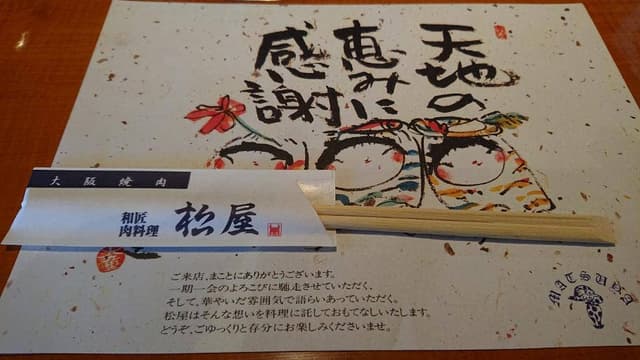 天地の
恵みに
感謝
大阪焼肉
和匠
肉料理
松屋
ご来店、まことにありがとうございます。
一期一会のよろこびに馳走させていただく、
そして、華やいだ雰囲気で語らいあっていただく、
松屋はそんな想いを料理に託しておもてなしいたします。
どうぞ、ごゆっくりと存分にお楽しみくださいませ。